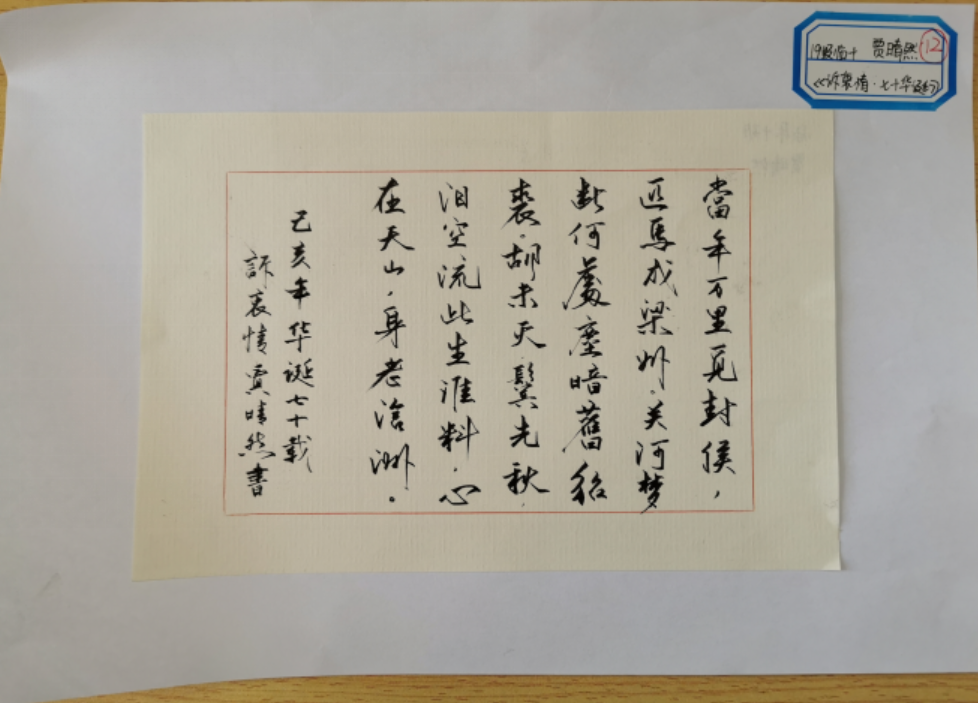 當年万里覓封侯，
匹馬戍梁州．关河梦
断何處塵暗舊貂
裘．胡未灭鬓先秋．
泪空流此生谁料．心
在天山．身老滄洲。
己亥年华诞七十载
訴衷情賈晴然書
19级临十 贾晴然 12
《诉衷情·七十华诞》